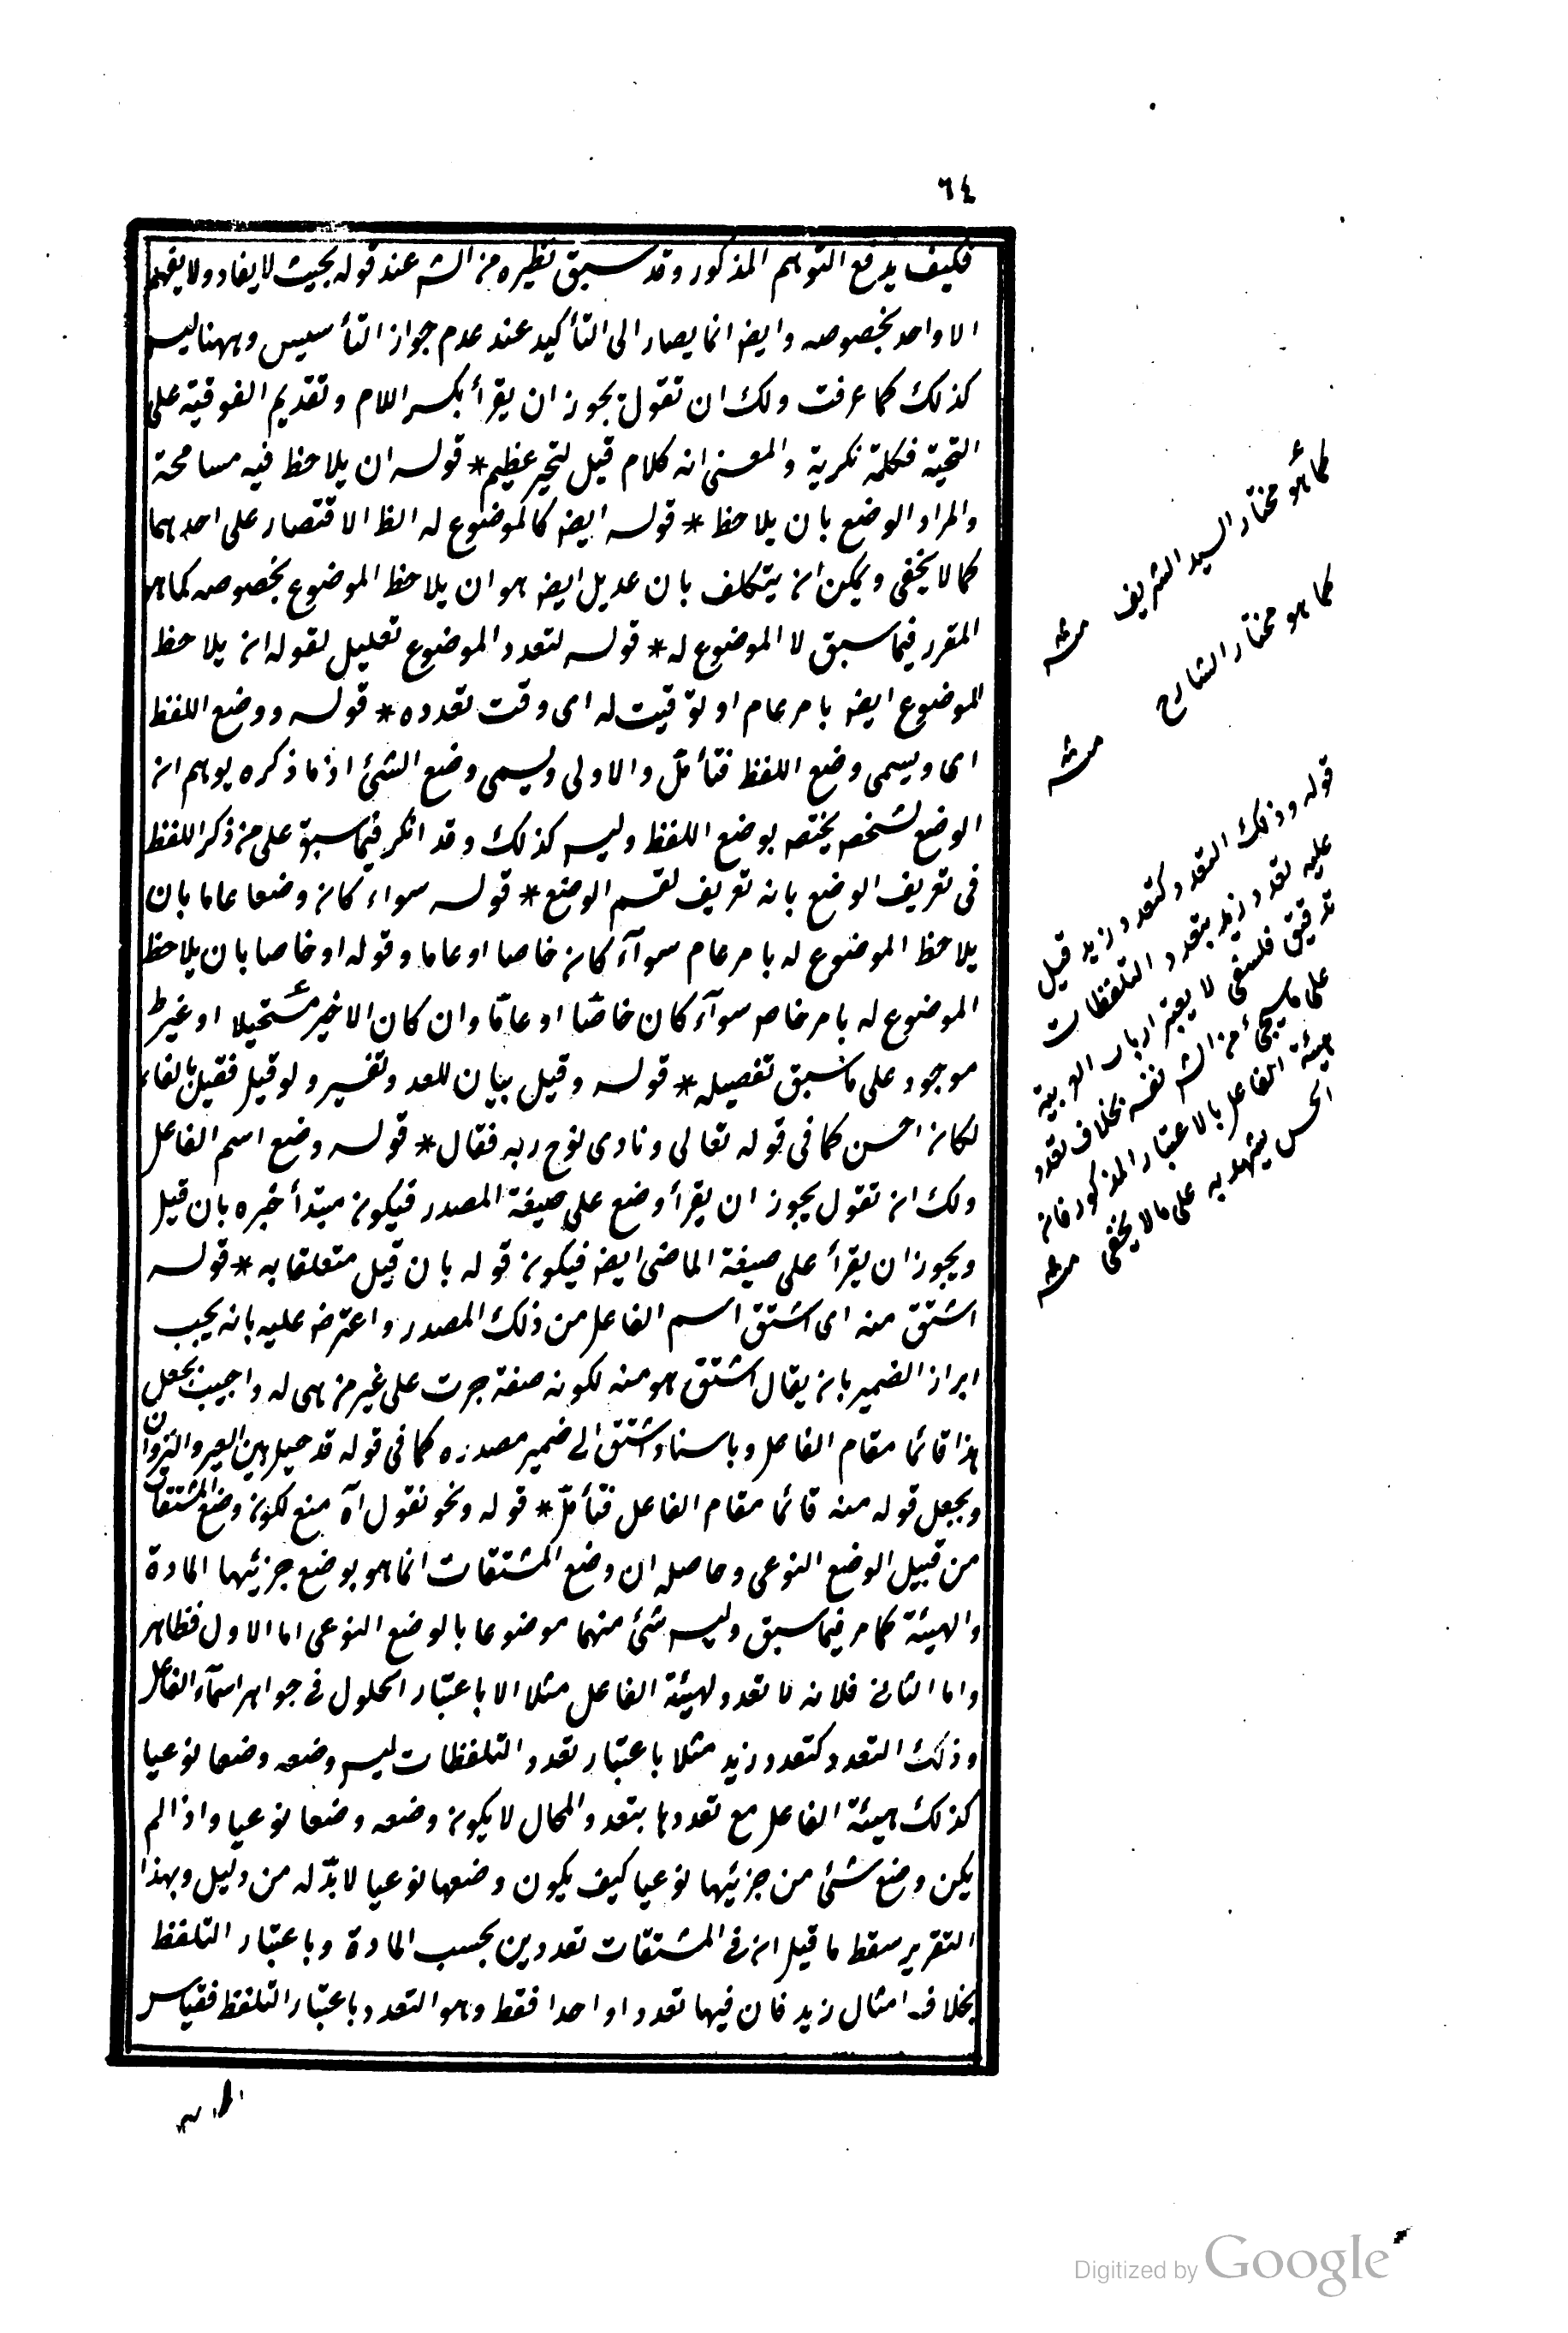 ٦٤
فكيف يدفع التوهم المذكور وقد سبق نظيره من الشه عند قوله بحيث لا يفاد ولا يفهم
الا واحد بخصوصه وايضا انما يصار الى التأكيد عند عدم جواز التأسيس وههنا ليس
كذلك كما عرفت ولك ان تقول يجوز ان يقرأ بكسر اللام وتقديم الفوقية على
التحتية فكلمة نكرية والمعنى انه كلام قيل لتحير عظيم * قوله ان يلاحظ فيه مسامحة
والمراد الوضع بان يلاحظ * قوله ايضا كالموضوع له الظ الاقتصار على احدهما
كما لا يخفى ويمكن ان يتكلف بان عديل ايضا هو ان يلاحظ الموضوع بخصوصه كما هو
المقرر فيما سبق لا الموضوع له * قوله لتعدد الموضوع تعليل لقوله ان يلاحظ
الموضوع ايضا بامر عام او توقيت له اى وقت تعدده * قوله ووضع اللفظ
اى ويسمى وضع اللفظ فتأمل والاولى ويسمى وضع الشئ اذ ما ذكره يوهم ان
الوضع لشخص يختص بوضع اللفظ وليس كذلك وقد انكر فيما سبق على من ذكر اللفظ
فى تعريف الوضع بانه تعريف لقسم الوضع * قوله سواء كان وضعا عاما بان
يلاحظ الموضوع له بامر عام سوآء كان خاصا او عاما وقوله او خاصا بان يلاحظ
الموضوع له بامر خاص سوآء كان خاصّا او عامّا وان كان الاخير مستحيلا او غير
موجود على ما سبق تفصيله * قوله وقيل بيان للعد وتفسير ولو قيل فقيل بالفاء
لكان احسن كما فى قوله تعالى ونادى نوح ربه فقال * قوله وضع اسم الفاعل
ولك ان تقول يجوز ان يقرأ وضع على صيغة المصدر فيكون مبتدأ خبره بان قيل
ويجوز ان يقرأ على صيغة الماضى ايضا فيكون قوله بان قيل متعلقا به * قوله
اشتق منه اى اشتق اسم الفاعل من ذلك المصدر واعترض عليه بانه يجب
ابراز الضمير بان يقال اشتق هو منه لكونه صفة جرت على غير من هى له واجيب بجعل
هذا قائما مقام الفاعل وباسناد اشتق الى ضمير مصدره كما فى قوله قد حيل بين العير والنزوان
وبجعل قوله منه قائما مقام الفاعل فتأمّل * قوله ونحو نقول آه منع لكون وضع المشتقات
من قبيل الوضع النوعى وحاصله ان وضع المشتقات انما هو بوضع جزئيها المادة
والهيئة كما مر فيما سبق وليس شئ منهما موضوعا بالوضع النوعى اما الاول فظاهر
واما الثانى فلانه لا تعدد لهيئة الفاعل مثلا الا باعتبار الحلول فى جواهر اسمآء الفاعل
وذلك التعدد كتعدد زيد مثلا باعتبار تعدد التلفظات ليس وضعه وضعا نوعيا
كذلك هيئة الفاعل مع تعددها بتعدد المحال لا يكون وضعه وضعا نوعيا واذا لم
يكن وضع شئ من جزئيها نوعيا كيف يكون وضعها نوعيا لا بدّ له من دليل وبهذا
التقرير سقط ما قيل ان فى المشتقات تعددين بحسب المادة وباعتبار التلفظ
بخلاف امثال زيد فان فيها تعددا واحدا فقط وهو التعدد باعتبار التلفظ فقياس
كما هو مختار السيد الشريف منه
كما هو مختار الشارح
منه
قوله وذلك التعدد كتعدد زيد قيل
عليه تعدد زيد بتعدد التلفظات
تدقيق فلسفى لا يعتبر ارباب العربية
على ما سيجئ من الشه نفسه بخلاف تعدد
هيئة الفاعل بالاعتبار المذكور فان
الحس يشهد به على ما لا يخفى منه
Digitized by Google